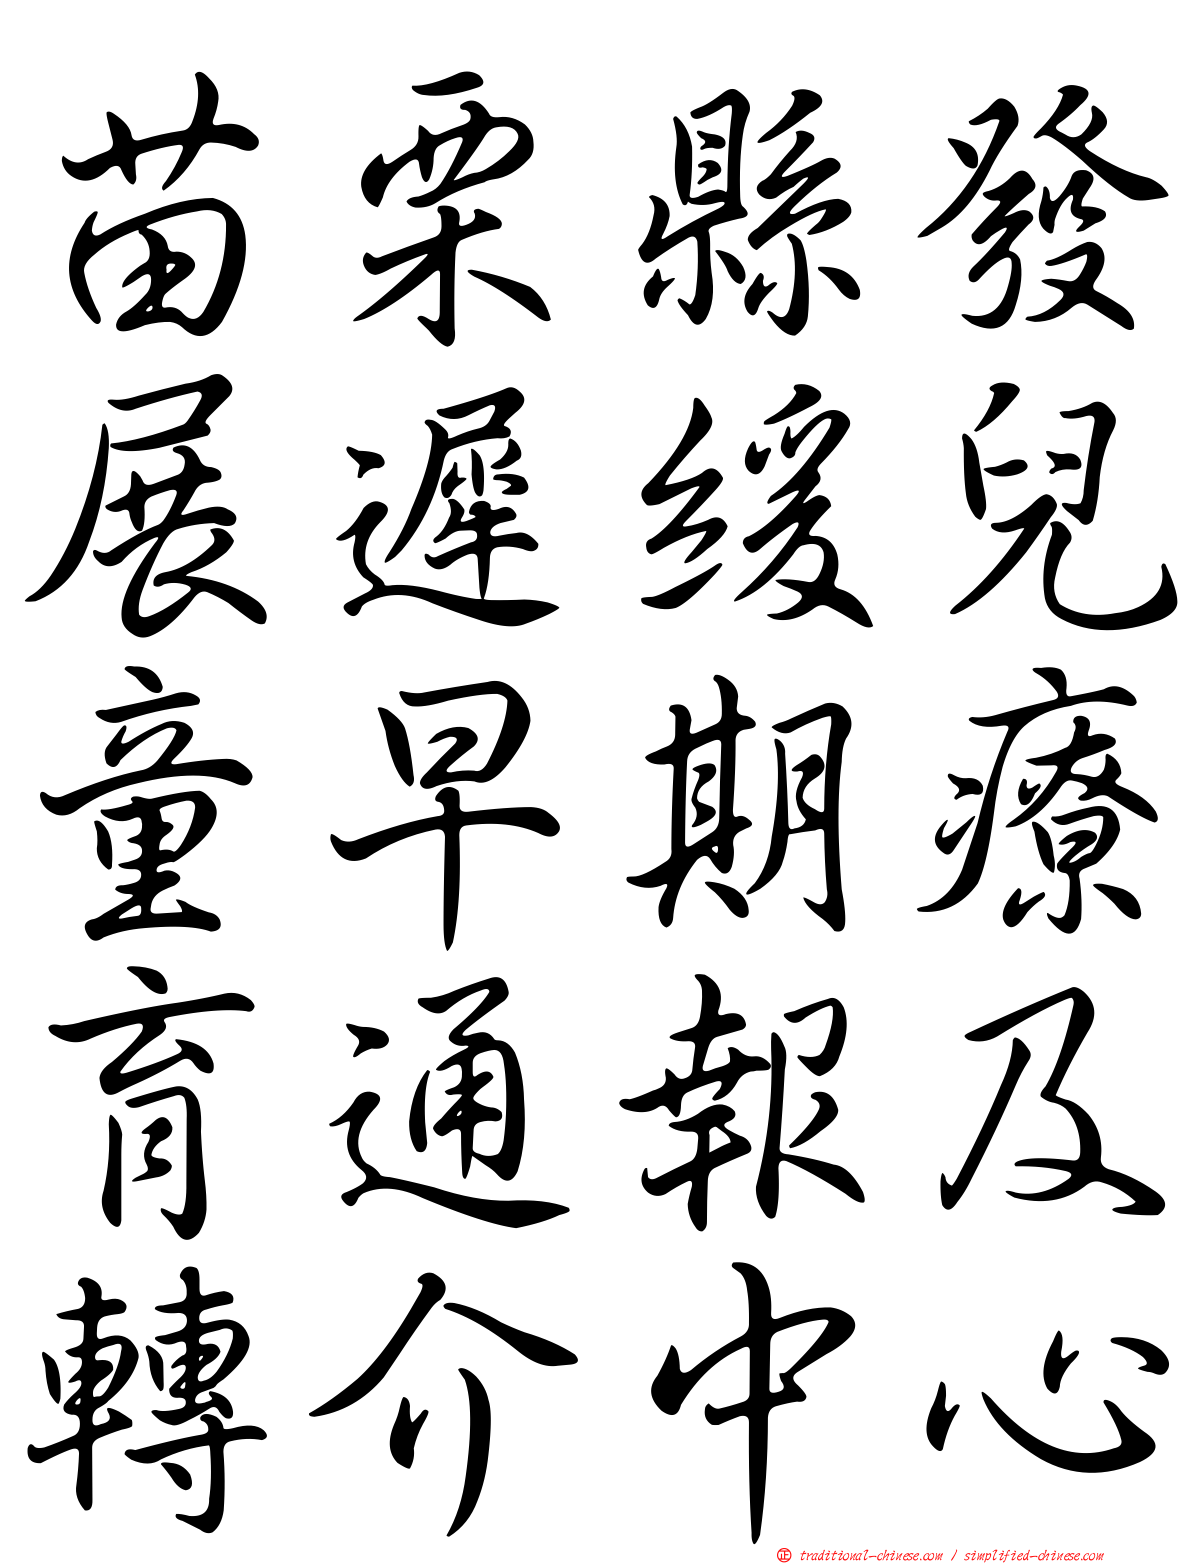 苗栗縣發
展遲緩兒
童早期療
育通報及
轉介中心
正 traditional-chinese.com / simplified-chinese.com